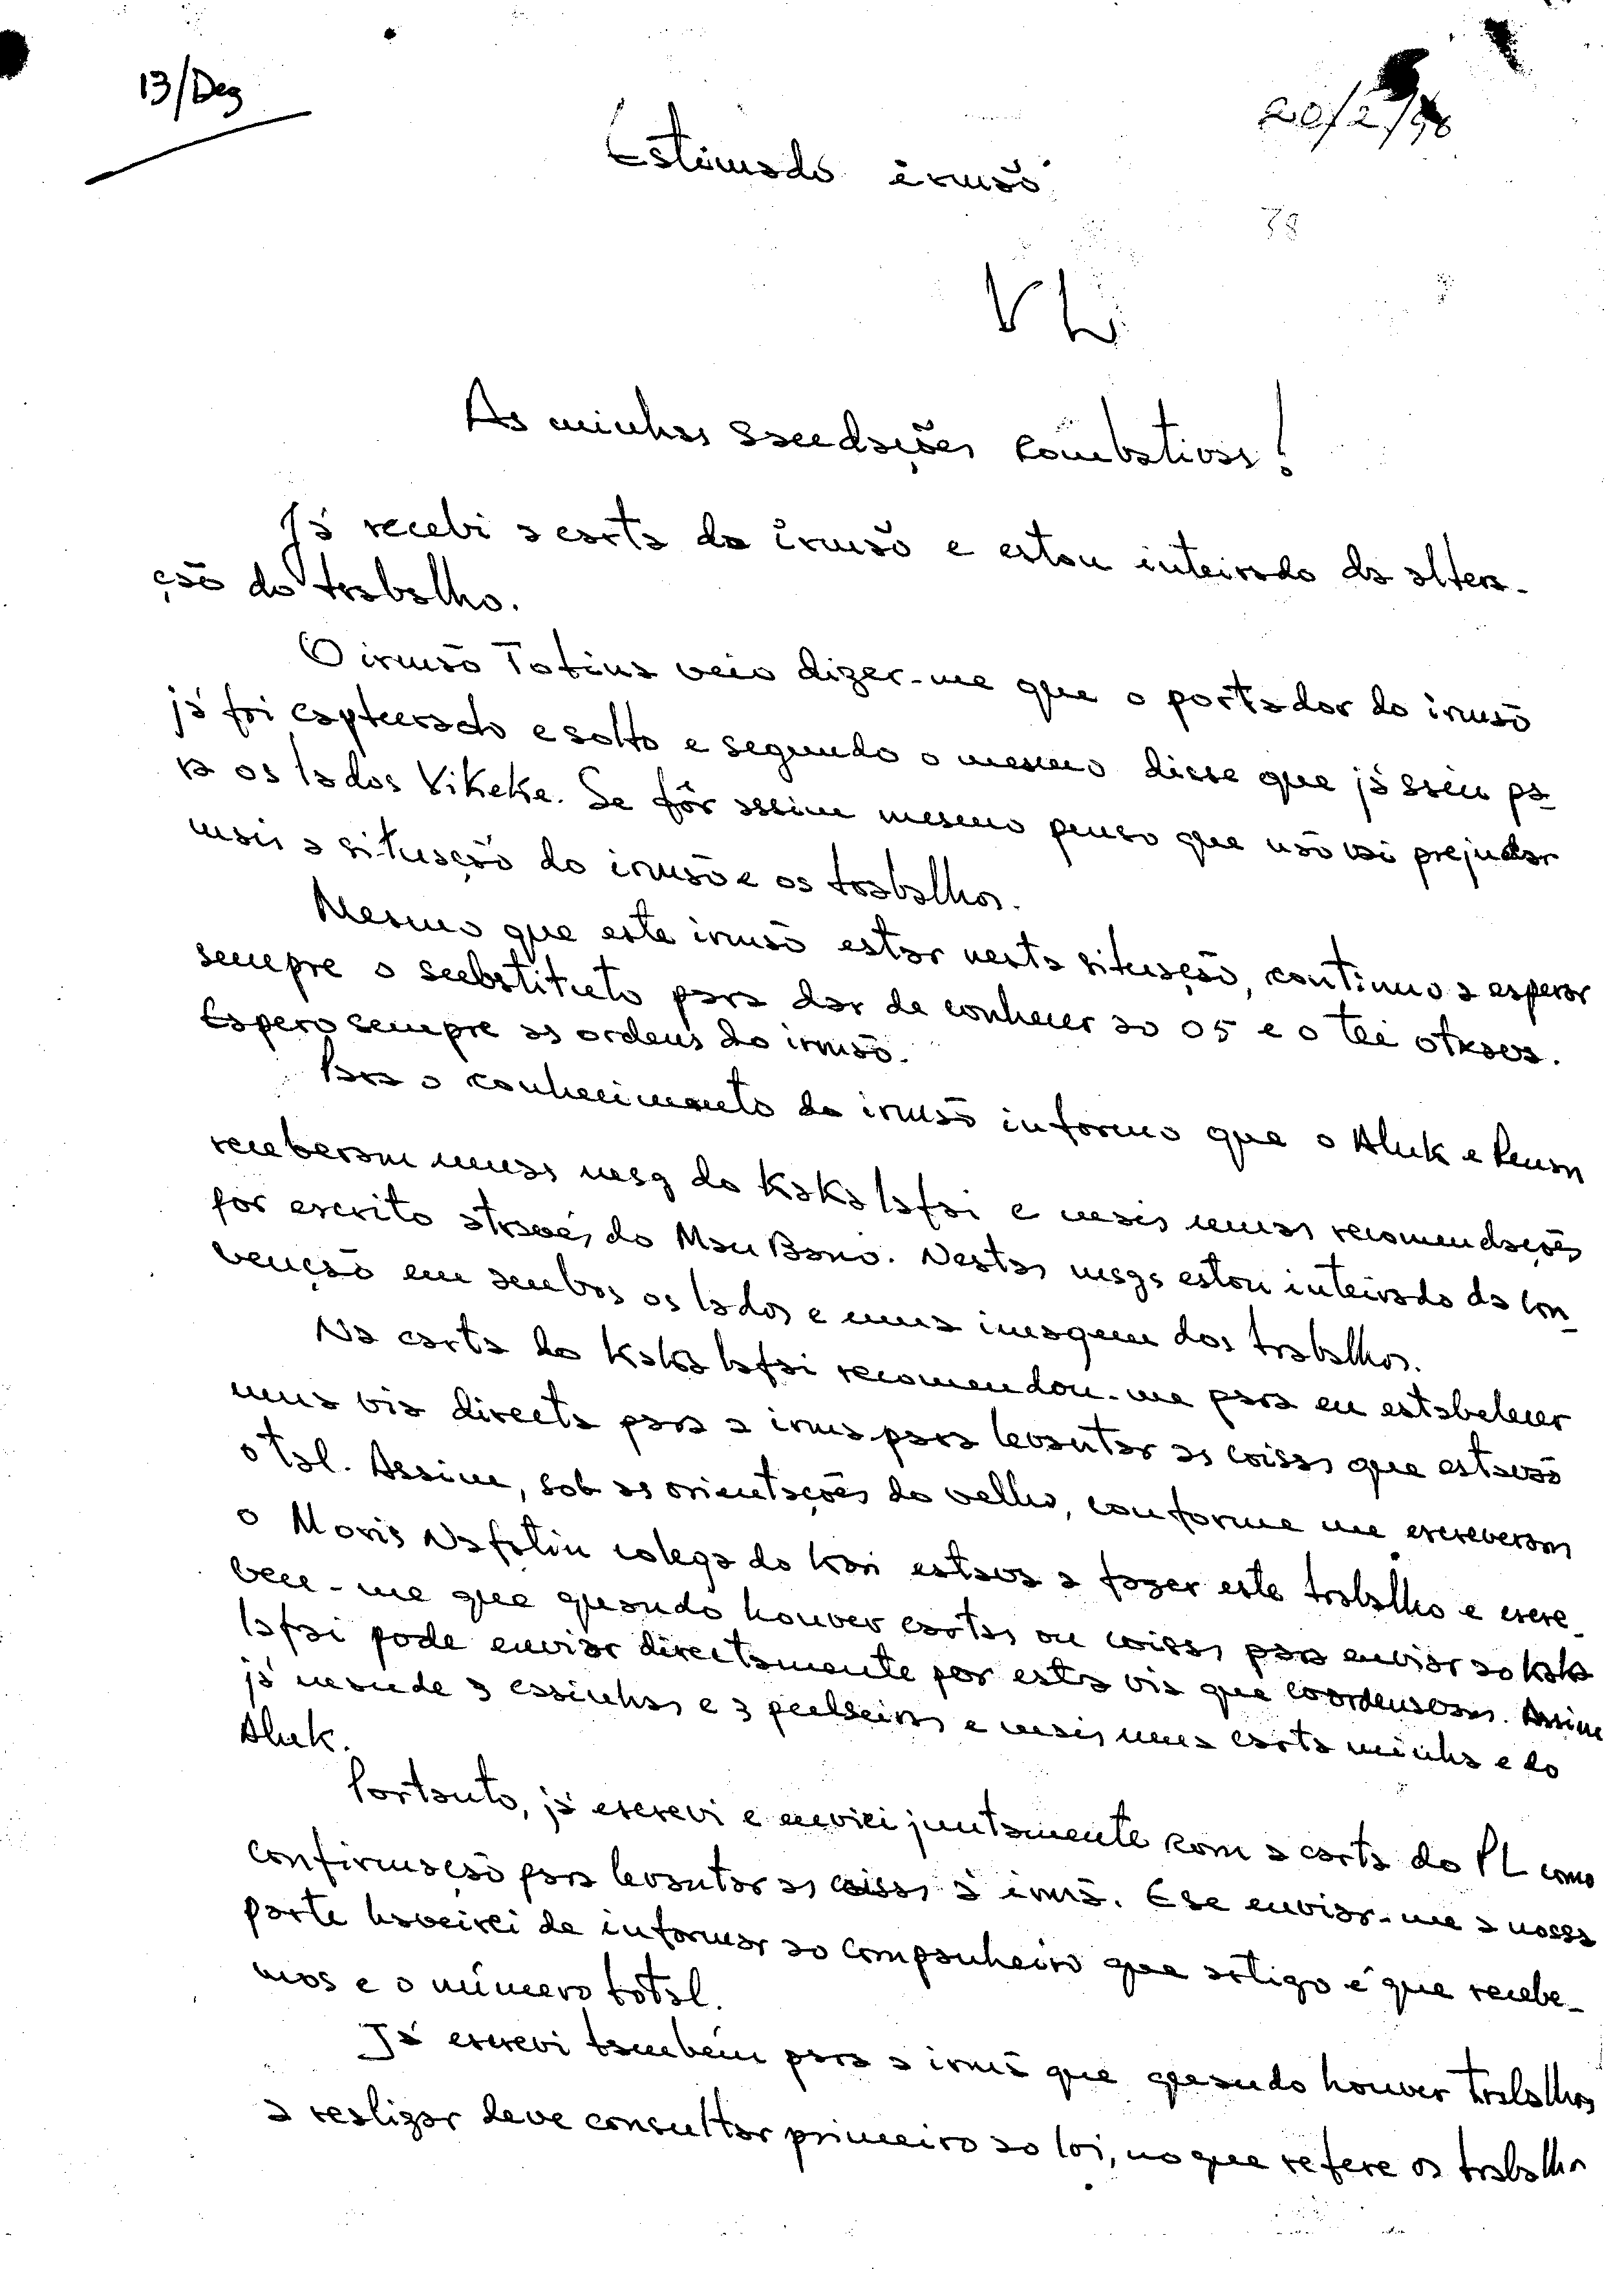 13/Dez
20/2/98
Estimado irmão
38
VL
As minhas saudações combativas!
Já recebi a carta do irmão e estou inteirado da altera-
ção do trabalho.
O irmão Tofina veio dizer-me que o portador do irmão
já foi capturado e solto e segundo o mesmo disse que já saiu pa-
ra os lados Vikeke. Se fôr assim mesmo penso que não vai prejudar
mais a situação do irmão e os trabalhos.
Mesmo que este irmão estar nesta situação, continuo a esperar
sempre o substituto para dar de conhecer ao 05 e o
Espero sempre as ordens do irmão.
Para o conhecimento do irmão informo que o Aluk e
receberam umas msg do Kaka lafai e mais umas recomendações
por escrito através do Mau Bano. Nestas msgs estou inteirado da con-
venção em ambos os lados e uma imagem dos trabalhos.
Na carta do Kaka lafai recomendou-me para eu estabelecer
uma via directa para a irmã para levantar as coisas que estavão
o tal. Assim, sob as orientações do velho, conforme me escreveram
o Moris Nafatin colega do Kai estava a fazer este trabalho e escre-
veu-me que quando houver cartas ou coisas para enviar ao Kaka
lafai pode enviar directamente por esta via que coordenavam. Assim
já mande 3 caxinhas e 3 pulseiras e mais uma carta minha e do
Aluk.
Portanto, já escrevi e enviei juntamente com a carta do PL como
confirmação para levantar as coisas à irmã. E se enviar-me a nossa
parte haveirei de informar ao companheiro que artigo é que recebe-
mos e o número total.
Já escrevi também para a irmã que quando houver trabalhos
a realizar deve consultar primeiro ao loi, no que refere os trabalho